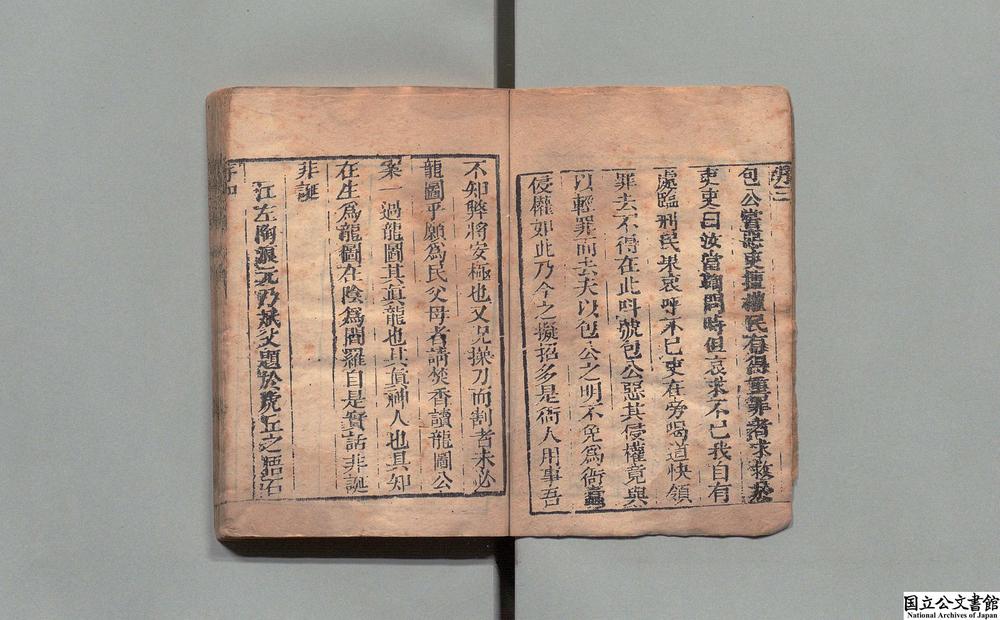 包公嘗惡吏擅權民有得重罪者求救於
吏吏曰汝當鞫問時但哀求不已我自有
處臨刑民果哀呼不已吏在旁喝道快領
罪去不得在此呌號包公惡其侵權竟與
以輕罪而去夫以包公之明不免為衙蠹
侵權如此乃今之擬招多是衙人用事吾
不知弊將安極也又况操刀而割者未必
龍圖乎願為民父母者請焚香讀龍圖公
案一過龍圖其眞龍也其眞神人也具知
在生為龍圖在陰為閻羅自是實話非誕
非誕
江左陶烺元乃斌父題於虎丘之悟石
序四
国立公文書館
National Archives of Japan